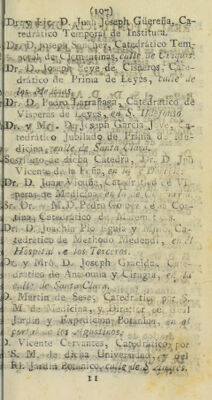 (107)
Dr. y Lic. D. Juan Joseph Güereña, Ca-
tedrático Temporal de Instituta.
Dr. D. Joseph Catedrático Tem-
poral de Clementinas, calle de
Dr. D. Joseph Reye de Cisneros, Cate-
drático de Prima de Leyes, calle de
los
Dr. D. Pedro Larrañaga, Catedrático de
Visperas de Leyes, en S. Ildefonso
Dr. y Mro. D. Joseph Garcia Jove, Ca-
tedrático Jubilado de Prima de Me-
dicina, calle de Santa Clara.
Sostituto de dicha Catedra, Dr. D.
Vicente de la Peña, en la
Dr. D. Juan Catedrático de Vi-
peras de Medicina,
Sr. Dr. y M. D. Pedro
Catedrático de
Dr. D. Joachin Pio y Ca-
tedrático de Methodo Medendi, en el
Hospital de los Terceros.
Dr. y Mrô. D. Joseph Gracida, Cate-
dratico de Anatomia y Cirugia, en la
calle de Santa Clara.
D. Martin de Sese, Catedratico por S.
M. de Medicina, y Director del Real
Jardin y Expedicion Botanica, en el
portal de los Agustinos.
D. Vicente Cervantes, Catedratico por
S. M. de dicha Universidad, y del
Rl. Jardin Botanico, calle de
11